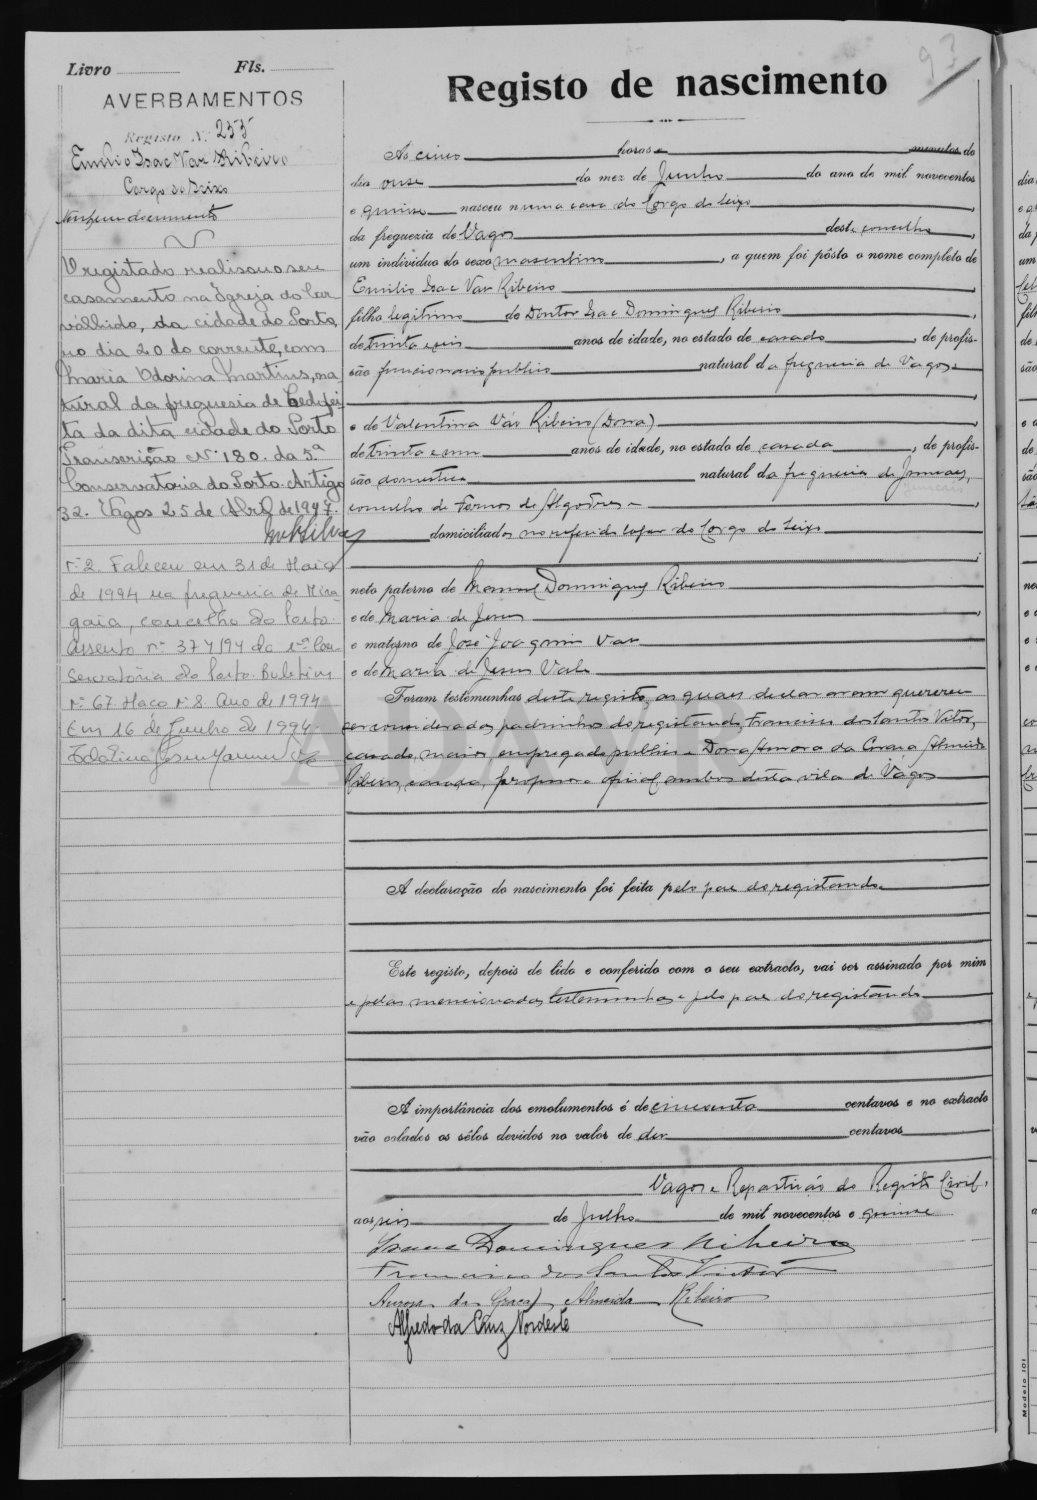 93
Livro Fls.
AVERBAMENTOS
Registo N.º 255
Emilio Isac Vaz Ribeiro
Corgo do Seixo
Nenhum documento
O registado realisou o seu
casamento na Igreja do Car-
valhido, da cidade do Porto,
no dia 20 do corrente, com
Maria Odorina Martins, na-
tural da freguesia de Cedofei-
ta da dita cidade do Porto
Transcrição Nº 180. da 5ª
Conservatoria do Porto. Artigo
32. Vagos 25 de Abril de 1947.
Nº 2. Faleceu em 31 de Maio
de 1994 na freguesia de Mira-
gaia, concelho do Porto
Assento nº 374/94 da 1ª Con-
servatória do Porto. Boletim
nº 67. Maço nº 8. Ano de 1994
Em 16 de Junho de 1994
Registo de nascimento
Ás cinco horas e minutos do
dia onze do mez de Junho do ano de mil novecentos
e quinze nasceu numa casa do Corgo do Seixo,
da freguezia de Vagos deste concelho,
um individuo do sexo masculino, a quem foi pôsto o nome completo de
Emilio Isac Vaz Ribeiro,
filho legitimo de Doutor Isac Domingues Ribeiro,
de trinta e seis anos de idade, no estado de casado, de profis-
são funcionario publico natural da freguesia de Vagos
e de Valentina Váz Ribeiro (Dona),
de trinta e um anos de idade, no estado de casada, de profis-
são domestica natural da freguesia de
concelho de Fornos de Algodres,
domiciliados no referido lugar do Corgo do Seixo
;
neto paterno de Manoel Domingues Ribeiro
e de Maria de Jesus,
e materno de José Joaquim Vaz
e de Maria de Jesus Vale
Foram testemunhas deste registo, as quais declararam quererem
ser consideradas padrinhos do registando, Francisco dos Santos Vitor,
casado, maior, empregado publico e Dona Aurora da Graça Almeida
Ribeiro, casada, professora oficial, ambos desta vila de Vagos
A declaração do nascimento foi feita pelo pae do registando
Este registo, depois de lido e conferido com o seu extracto, vai ser assinado por mim
e pelas mencionadas testemunhas e pelo pae do registando
A importância dos emolumentos é de cincoenta centavos e no extracto
vão colados os sêlos devidos no valor de dez centavos
Vagos e Repartição do Registo Civil,
aos seis de Julho de mil novecentos e quinze
Isaac Domingues Ribeiro
Francisco dos Santos Victor
Aurora da Graça Almeida Ribeiro
Alfredo da Cruz Nordeste
Modelo 101